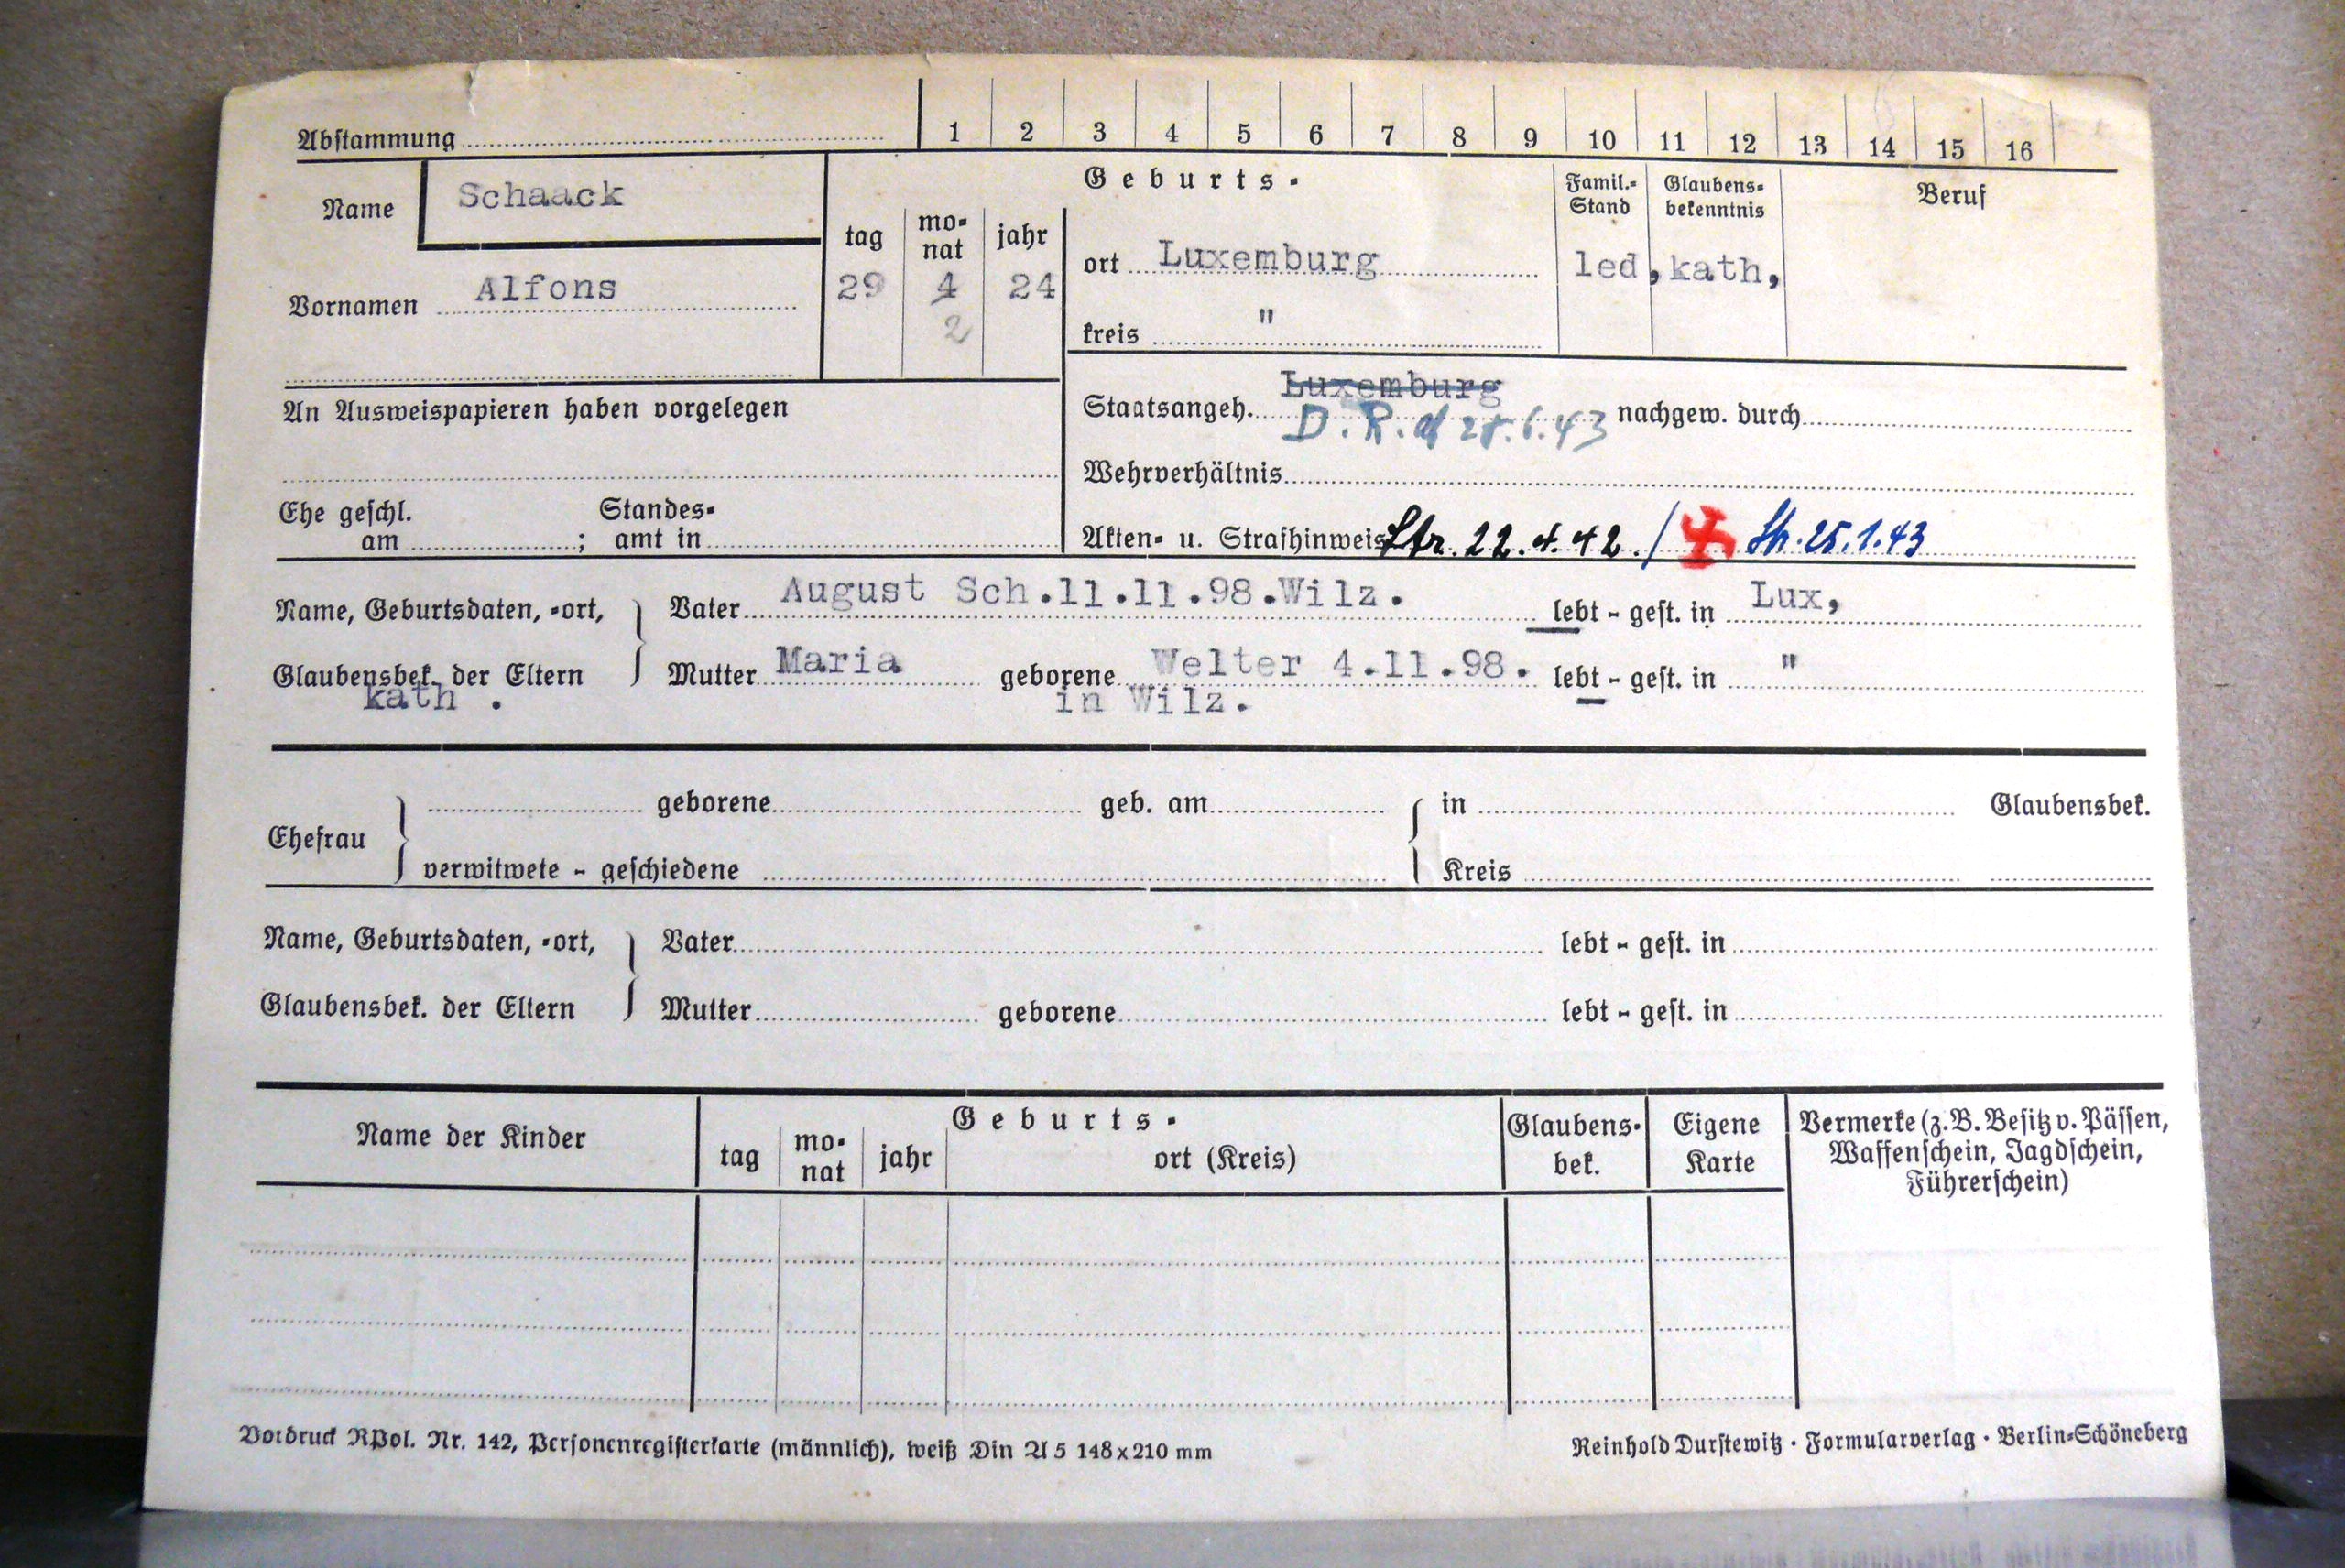 Abstammung 1 2 3 4 5 6 7 8 9 10 11 12 13 14 15 16
Name Schaack
Geburts-
Famil.-Stand Glaubens-bekenntnis Beruf
tag mo-nat jahr
ort Luxemburg led, kath,
Vornamen Alfons 29 4 24
2
kreis "
An Ausweispapieren haben vorgelegen
Staatsangeh. Luxemburg nachgew. durch
D.R. 28.6.43
Wehrverhältnis
Ehe geschl. am ; Standes-amt in
Akten- u. Strafhinweis Str. 22.4.42. / Str. 25.1.43
Name, Geburtsdaten, -ort, Vater August Sch.11.11.98.Wilz. lebt - gest. in Lux,
Glaubensbek. der Eltern Mutter Maria geborene Welter 4.11.98. lebt - gest. in "
kath . in Wilz.
geborene geb. am in Glaubensbek.
Ehefrau
verwitwete - geschiedene Kreis
Name, Geburtsdaten, -ort, Vater lebt - gest. in
Glaubensbek. der Eltern Mutter geborene lebt - gest. in
Name der Kinder Geburts- Glaubens-bek. Eigene Karte Vermerke (z.B. Besitz v. Pässen,
tag mo-nat jahr ort (Kreis) Waffenschein, Jagdschein,
Führerschein)
Vordruck RPol. Nr. 142, Personenregisterkarte (männlich), weiß Din A 5 148x210 mm
Reinhold Durstewitz · Formularverlag · Berlin-Schöneberg